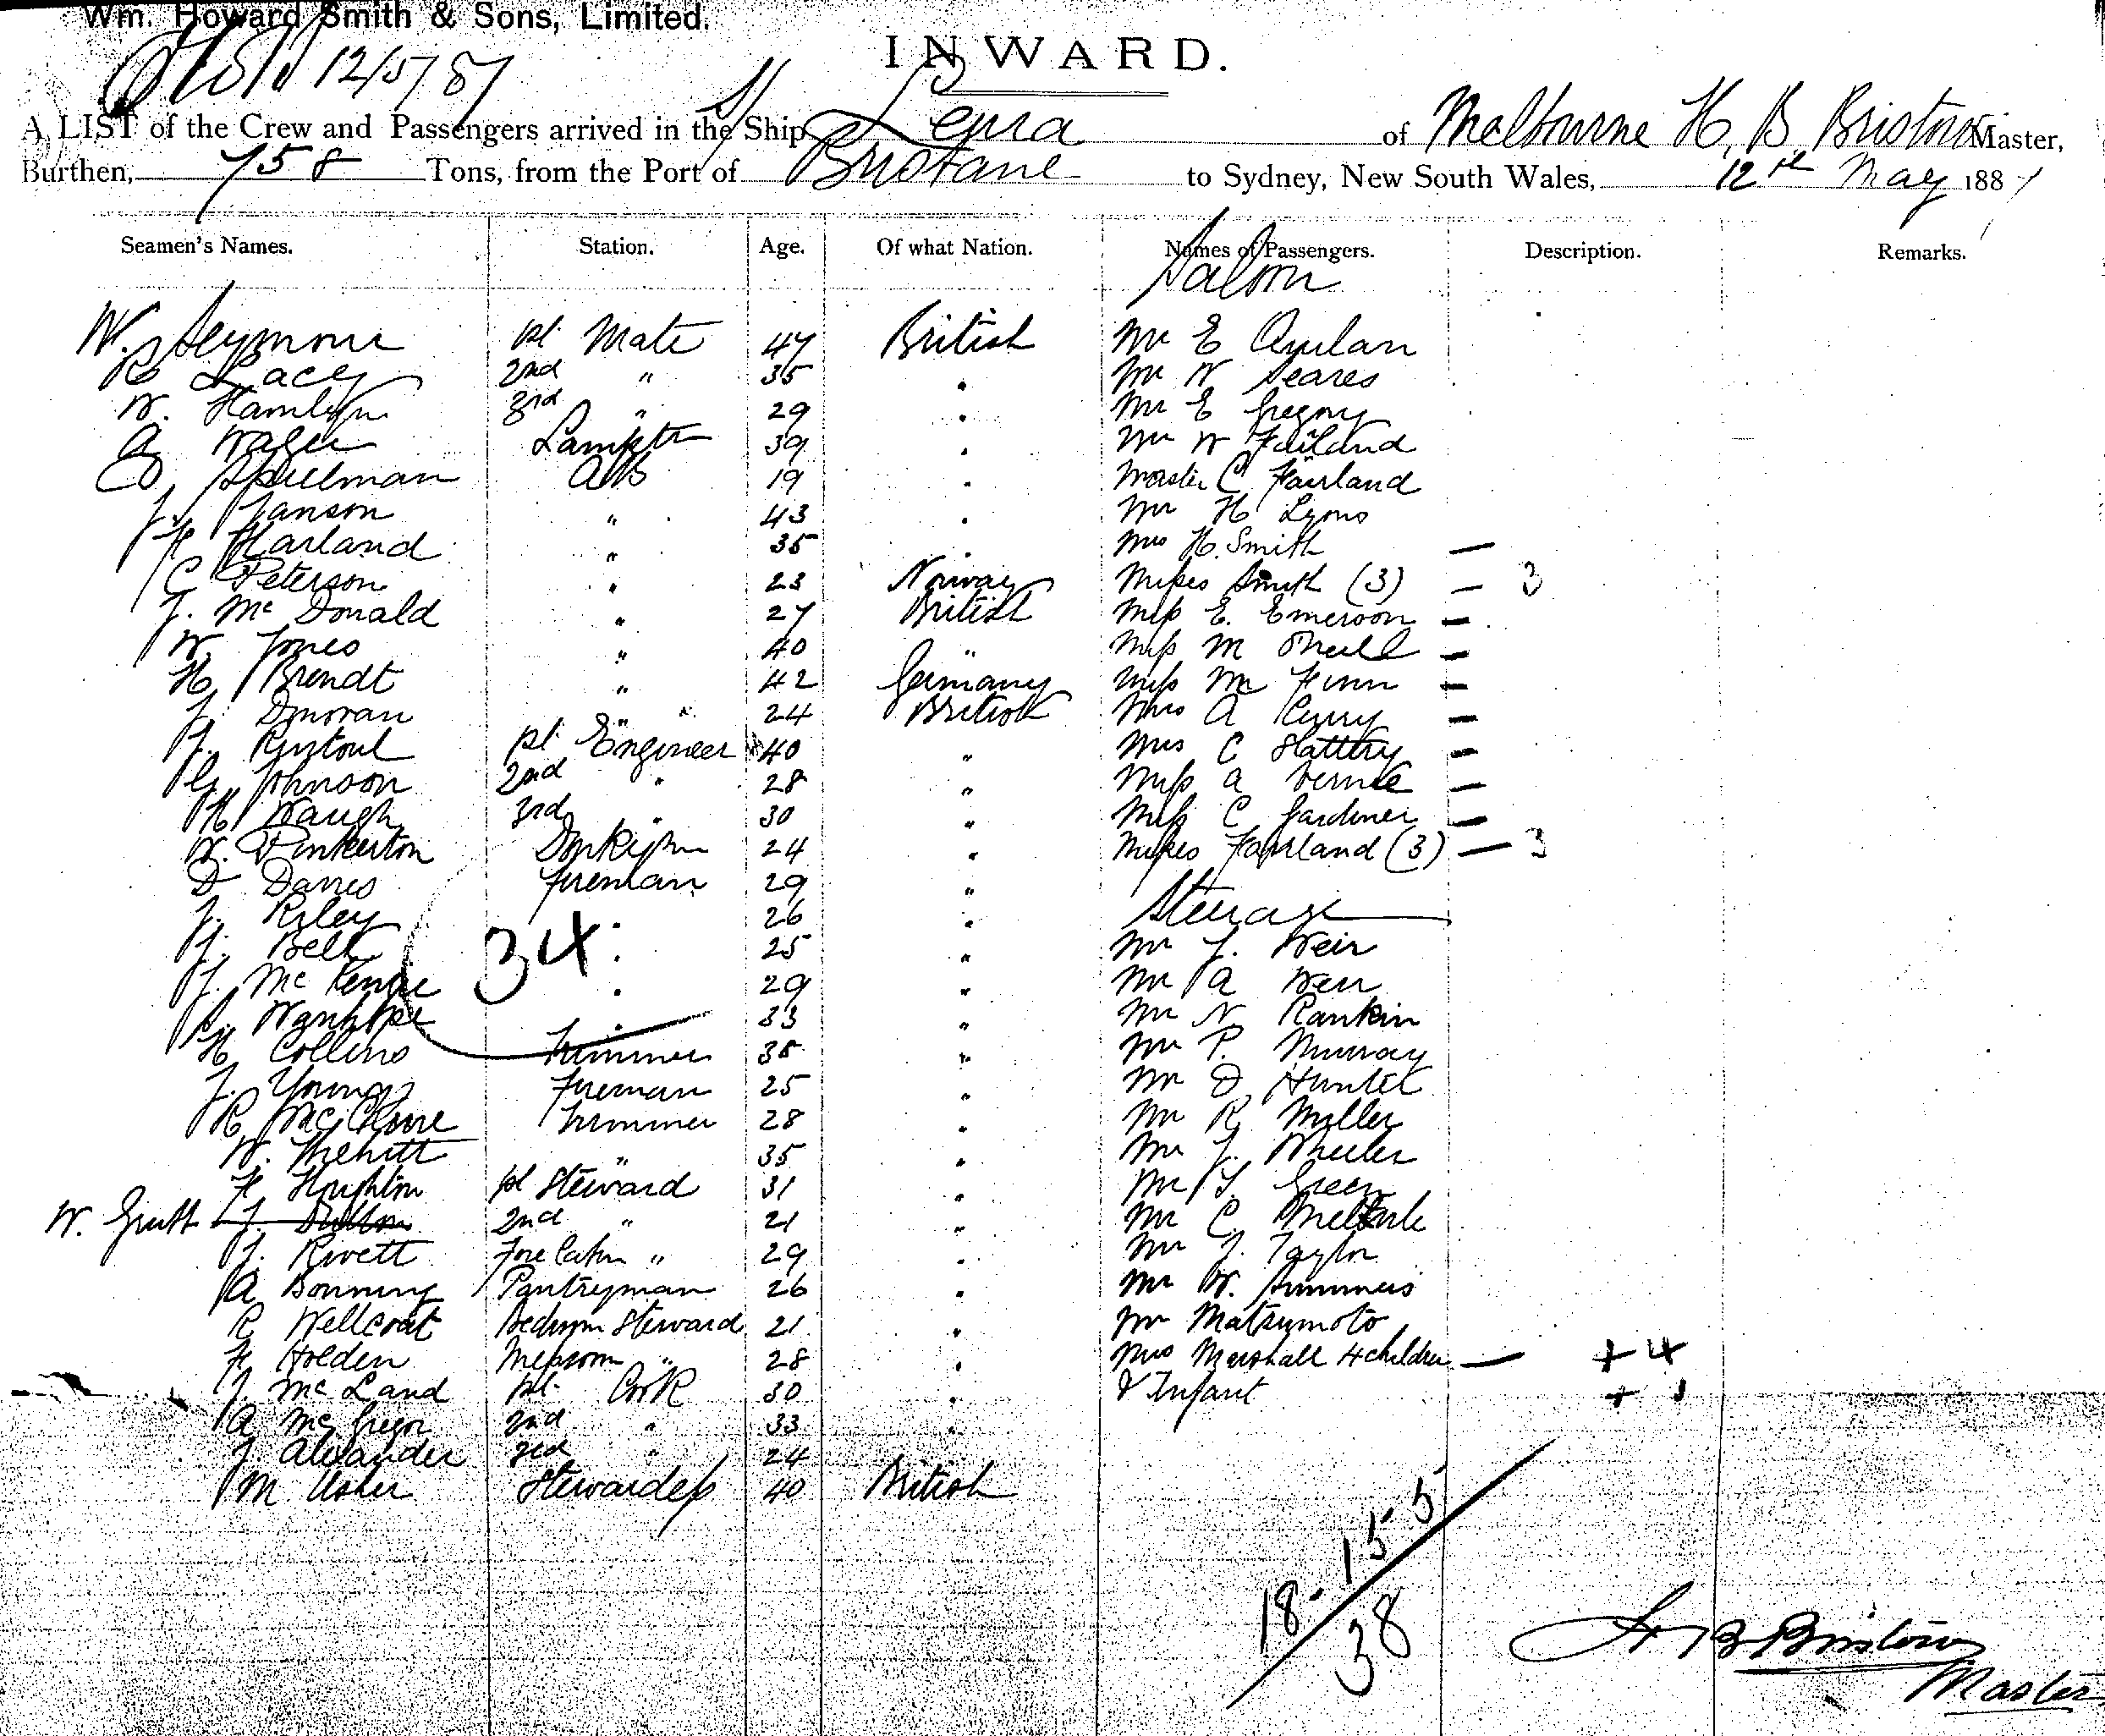 Wm. Howard Smith & Sons, Limited.
12/5/87
INWARD.
A LIST of the Crew and Passengers arrived in the Ship Leura of Melbourne H. B. Bristow Master,
Burthen, 758 Tons, from the Port of Brisbane to Sydney, New South Wales, 12th May 1887
Seamen's Names. Station. Age. Of what Nation. Names of Passengers. Description. Remarks.
Saloon
W. Seymour 1st Mate 47 British Mr E Quilan
R Lacey 2nd " 35 " Mr W Seares
W. Hamlyn 3rd " 29 " Mr E Gregory
A Wager Lamptr 39 " Mr W Fairland
Spielman AB 19 " Master C Fairland
J. Janson " 43 " Mr H Lyons
F Harland " 35 " Mrs H. Smith —
C Peterson " 23 Norway Misses Smith (3) — 3
J. McDonald " 27 British Miss E. Emerson —
W Jones " 40 " Miss M ONeill —
H Brendt " 42 Germany Miss M Finn —
J. Donovan " 24 British Mrs A Curry —
J. Rintoul 1st Engineer 40 " Mrs C Slattery —
G. Johnson 2nd " 28 " Miss A —
H Waugh 3rd " 30 " Miss C Gardiner —
W. Pinkerton Donkeymn 24 " Misses Fairland (3) — 3
D Davies Fireman 29 "
J. Riley " 26 " Steerage
J. Bell " 25 " Mr J. Weir
J. McKenzie " 29 " Mr A Weir
34
Wanhope " 33 " Mr N Rankin
H Collins Trimmer 35 " Mr P. Murray
J. Young Fireman 25 " Mr D Hunter
R McClure Trimmer 28 " Mr R Miller
W. " 35 " Mr J. Wheeler
F Houghton 1st Steward 31 " Mr T. Green
W. J. 2nd " 21 " Mr C.
J. Rivett Fore Cabin " 29 " Mr J. Taylor
A Bonning Pantryman 26 " Mr W. Summers
R Wellcoat Bedroom Steward 21 " Mr Matsumoto
F Holden Messroom " 28 " Mrs Marshall 4 children — + 4
J. McLand 1st Cook 30 " & Infant + 1
A McGregor 2nd " 33 "
J. Alexander 3rd " 24 "
M Usher Stewardess 40 British
18. 15 5
38
H B Bristow
Master